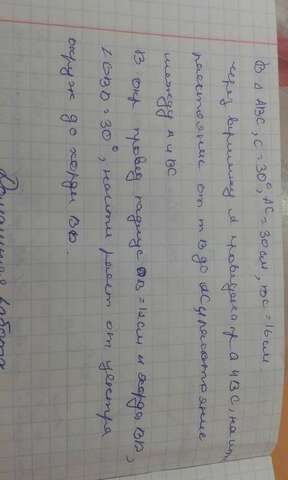 В ∆ ABC, C = 30°, AC = 30 см, BC = 16 см
через вершину A проведена пр a ∥ BC, найти
расстояние от т B до AC, расстояние
между a и BC
В окр провед радиус OB = 14 см и хорды BD,
∠OBD = 30°, найти расст от центра
окруж до хорды BD.
Домашняя работа